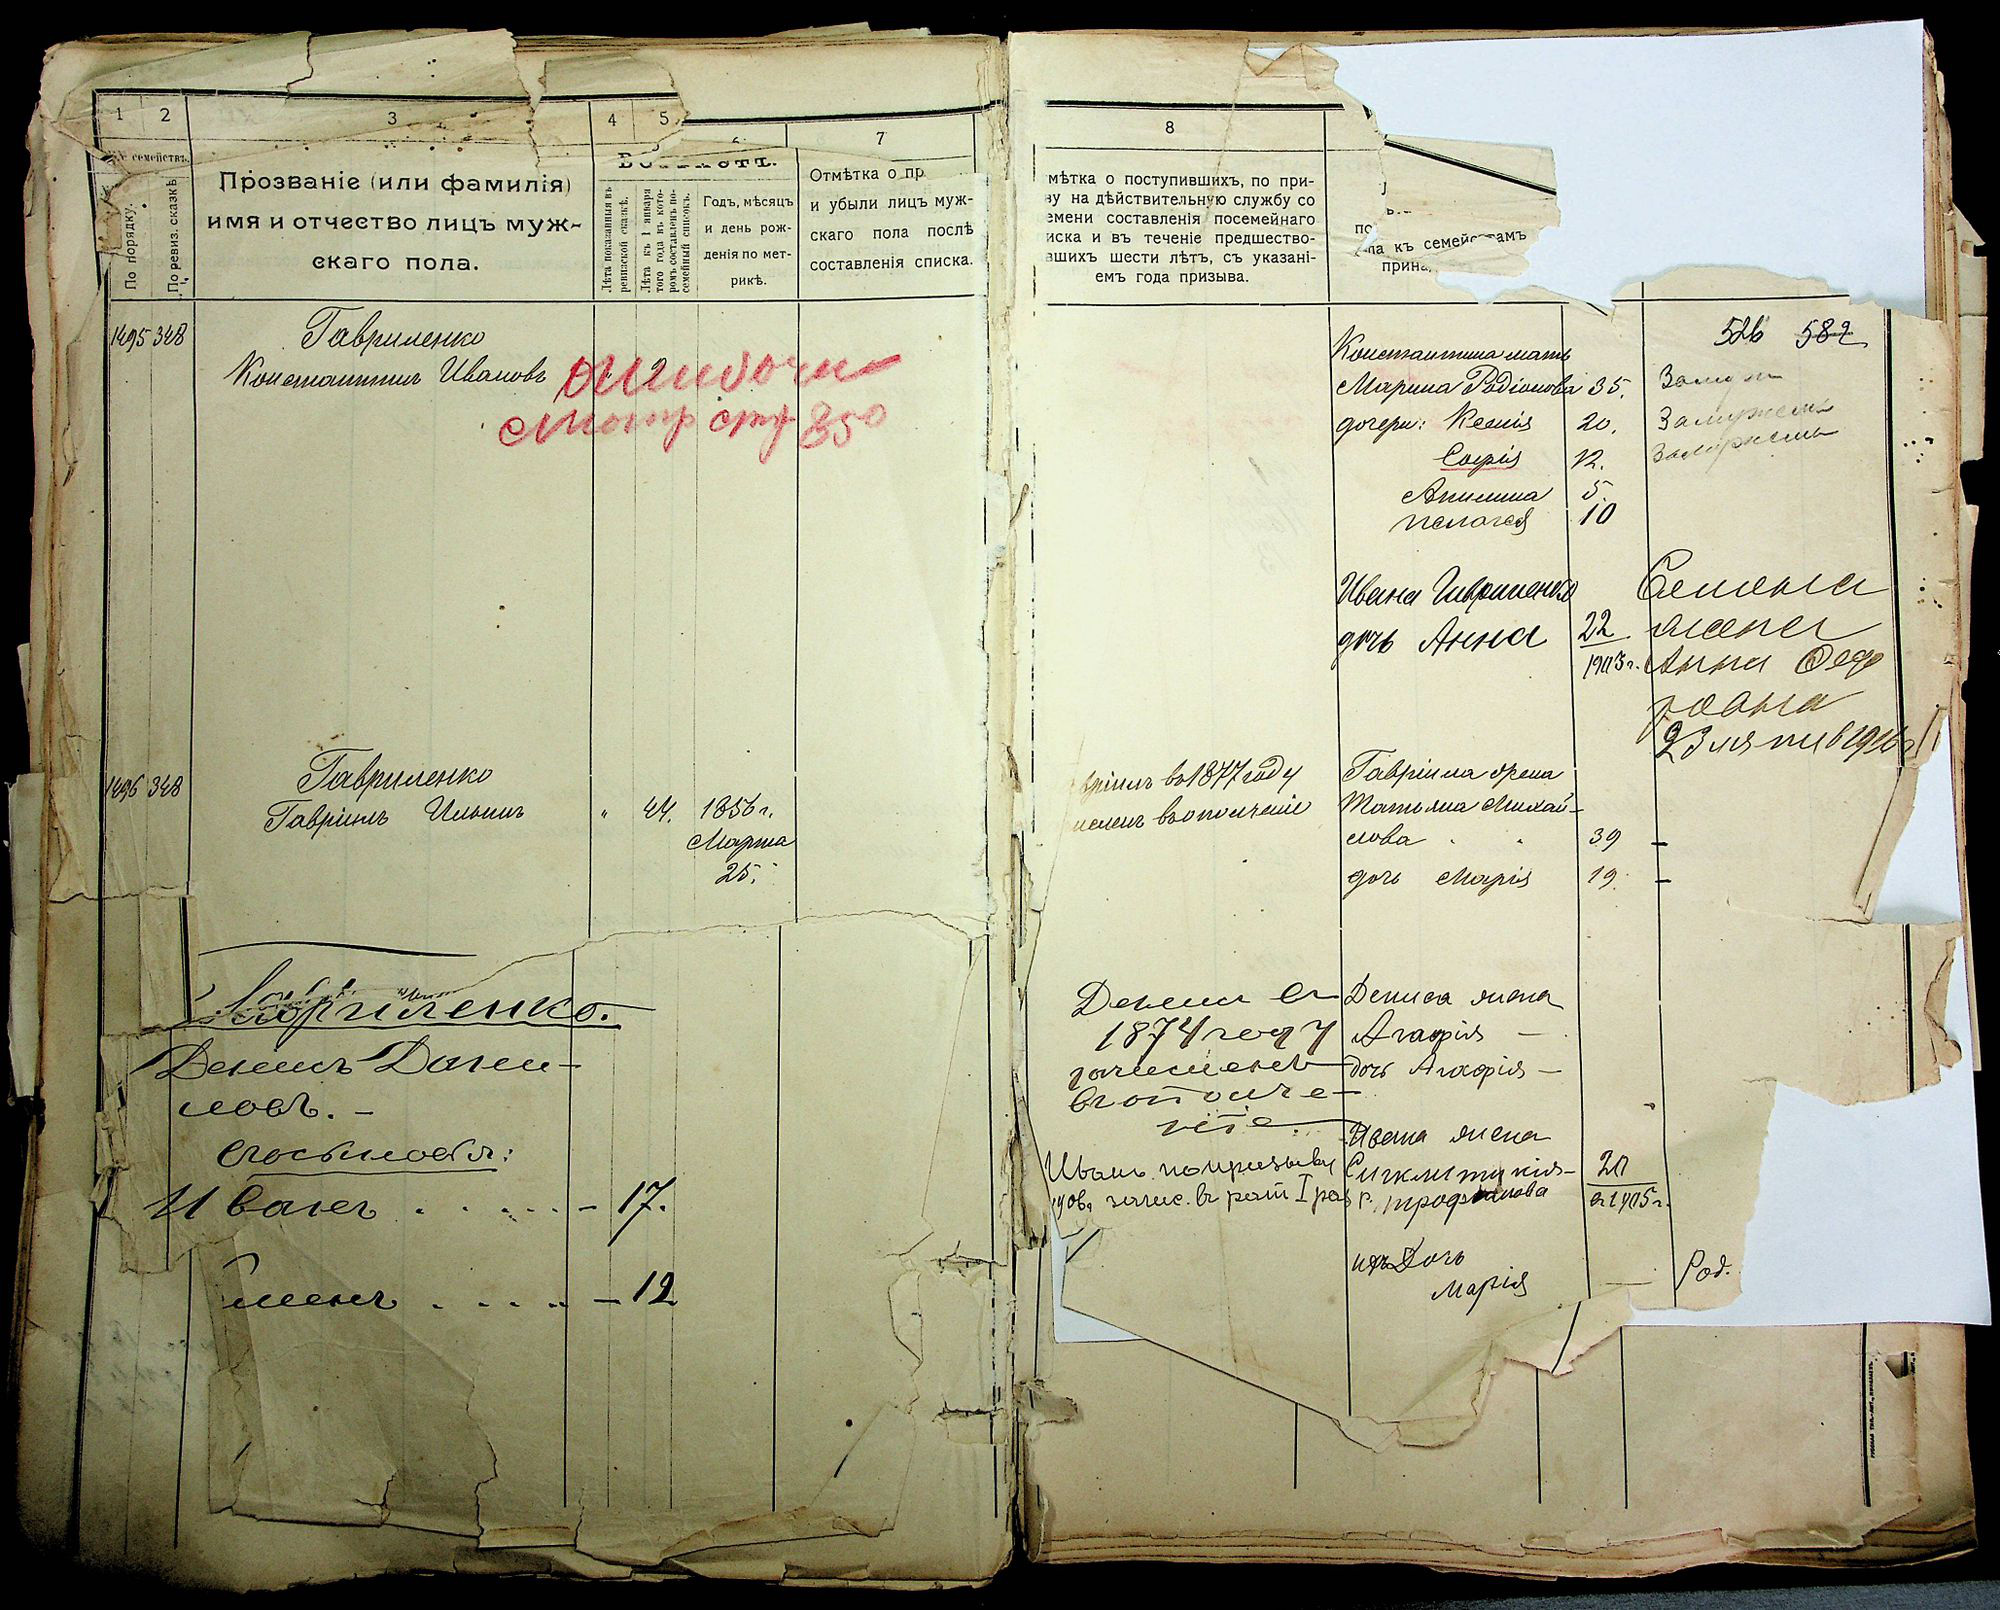 1 2 3 4 5 6 7
№ семействъ.
По порядку.
По ревиз. сказкѣ
Прозваніе (или фамилія)
имя и отчество лицъ муж-
скаго пола.
Лѣта показанныя въ
ревизской сказкѣ.
Лѣта къ 1 января
того года въ кото-
ромъ составленъ по-
семейный списокъ.
Годъ, мѣсяцъ
и день рож-
денія по мет-
рикѣ.
Отмѣтка о пр
и убыли лицъ муж-
скаго пола послѣ
составленія списка.
1495 348 Гавриленко
Константинъ Ивановъ
ошибочн
смотр стр 850
1496 348 Гавриленко
Гавріилъ Ильинъ " 44. 1856 г.
Марта
25.
Гавриленко.
Денисъ Дани-
ловъ. —
Сыновья:
Иванъ . . . . . — 17.
— 12
8
мѣтка о поступившихъ, по при-
ву на дѣйствительную службу со
емени составленія посемейнаго
иска и въ теченіе предшество-
вшихъ шести лѣтъ, съ указані-
емъ года призыва.
къ семействамъ
526 582
Константина мать
Марина Родіонова 35.
дочери: Ксенія 20. Замужемъ
Софія 12. Замужемъ
Акилина 5.
Пелагея 10
Ивана Гавриленко
дочь Анна 22
1903 г.
Семена
жена
Анна Фед
рова
23 1916 г
вріилъ въ 1877 году
численъ въ ополченіе
Гавріила жена
Татьяна Михай-
лова . . 39 —
дочь Марія 19. —
Денисъ въ
1874 году
зачисленъ
въ ополче-
ніе.
Дениса жена
Агафія —
дочь Агафія —
Ивана жена
Сигклитикія
Трофимова
20
въ 1905 г.
Иванъ по призыву
190 зачис. въ рат I раз р.
ихъ Дочь
Марія — Род.